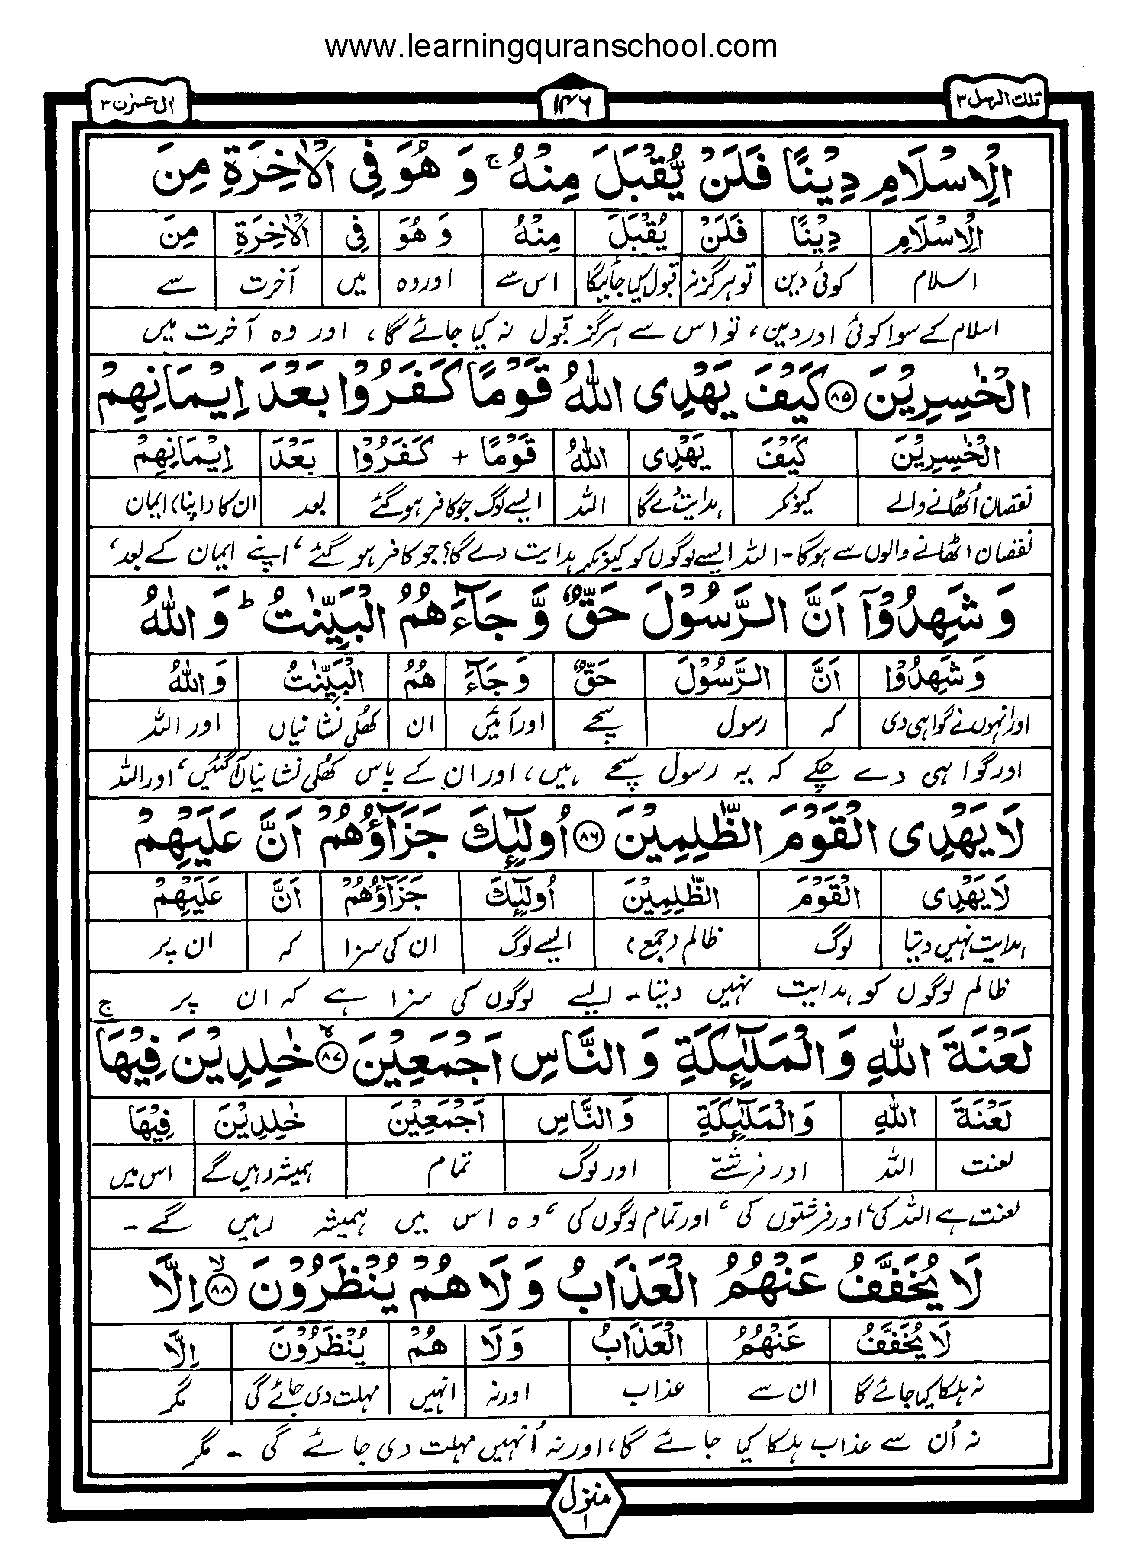 www.learningquranschool.com
تلك الرسل ٣
١٤٦
ال عمرٰن ٣
الْاِسْلَامِ دِيْنًا فَلَنْ يُّقْبَلَ مِنْهُ ۚ وَ هُوَ فِى الْاٰخِرَةِ مِنَ
الْاِسْلَامِ دِيْنًا فَلَنْ يُقْبَلَ مِنْهُ وَ هُوَ فِى الْاٰخِرَةِ مِنَ
اسلام کوئی دین تو ہرگز نہ قبول کیا جائیگا اس سے اور وہ میں آخرت سے
اسلام کے سوا کوئی اور دین، تو اس سے ہرگز قبول نہ کیا جائے گا، اور وہ آخرت میں
الْخٰسِرِيْنَ ۸۵ كَيْفَ يَهْدِى اللّٰهُ قَوْمًا كَفَرُوْا بَعْدَ اِيْمَانِهِمْ
الْخٰسِرِيْنَ كَيْفَ يَهْدِى اللّٰهُ قَوْمًا + كَفَرُوْا بَعْدَ اِيْمَانِهِمْ
نقصان اُٹھانے والے کیونکر ہدایت دے گا اللہ ایسے لوگ جو کافر ہوگئے بعد ان کا (اپنا) ایمان
نقصان اٹھانے والوں سے ہوگا۔ اللہ ایسے لوگوں کو کیونکر ہدایت دے گا؟ جو کافر ہو گئے، اپنے ایمان کے بعد،
وَ شَهِدُوْۤا اَنَّ الرَّسُوْلَ حَقٌّ وَّ جَآءَهُمُ الْبَيِّنٰتُ ؕ وَ اللّٰهُ
وَ شَهِدُوْا اَنَّ الرَّسُوْلَ حَقٌّ وَ جَآءَ هُمُ الْبَيِّنٰتُ وَ اللّٰهُ
اور انہوں نے گواہی دی کہ رسول سچے اور آئیں ان کھلی نشانیاں اور اللہ
اور گواہی دے چکے کہ یہ رسول سچے ہیں، اور ان کے پاس کھلی نشانیاں آگئیں، اور اللہ
لَا يَهْدِى الْقَوْمَ الظّٰلِمِيْنَ ۸۶ اُولٰٓئِكَ جَزَآؤُهُمْ اَنَّ عَلَيْهِمْ
لَا يَهْدِى الْقَوْمَ الظّٰلِمِيْنَ اُولٰٓئِكَ جَزَآؤُهُمْ اَنَّ عَلَيْهِمْ
ہدایت نہیں دیتا لوگ ظالم (جمع) ایسے لوگ ان کی سزا کہ ان پر
ظالم لوگوں کو ہدایت نہیں دیتا۔ ایسے لوگوں کی سزا ہے کہ ان پر ج
لَعْنَةَ اللّٰهِ وَ الْمَلٰٓئِكَةِ وَ النَّاسِ اَجْمَعِيْنَ ۸۷ خٰلِدِيْنَ فِيْهَا
لَعْنَةَ اللّٰهِ وَ الْمَلٰٓئِكَةِ وَ النَّاسِ اَجْمَعِيْنَ خٰلِدِيْنَ فِيْهَا
لعنت اللہ اور فرشتے اور لوگ تمام ہمیشہ رہیں گے اس میں
لعنت ہے اللہ کی، اور فرشتوں کی، اور تمام لوگوں کی، وہ اس میں ہمیشہ رہیں گے ۔
لَا يُخَفَّفُ عَنْهُمُ الْعَذَابُ وَ لَا هُمْ يُنْظَرُوْنَ ۸۸ اِلَّا
لَا يُخَفَّفُ عَنْهُمُ الْعَذَابُ وَ لَا هُمْ يُنْظَرُوْنَ اِلَّا
نہ ہلکا کیا جائے گا ان سے عذاب اور نہ انہیں مہلت دی جائے گی مگر
نہ اُن سے عذاب ہلکا کیا جائے گا، اور نہ اُنہیں مہلت دی جائے گی ۔ مگر
منزل ١